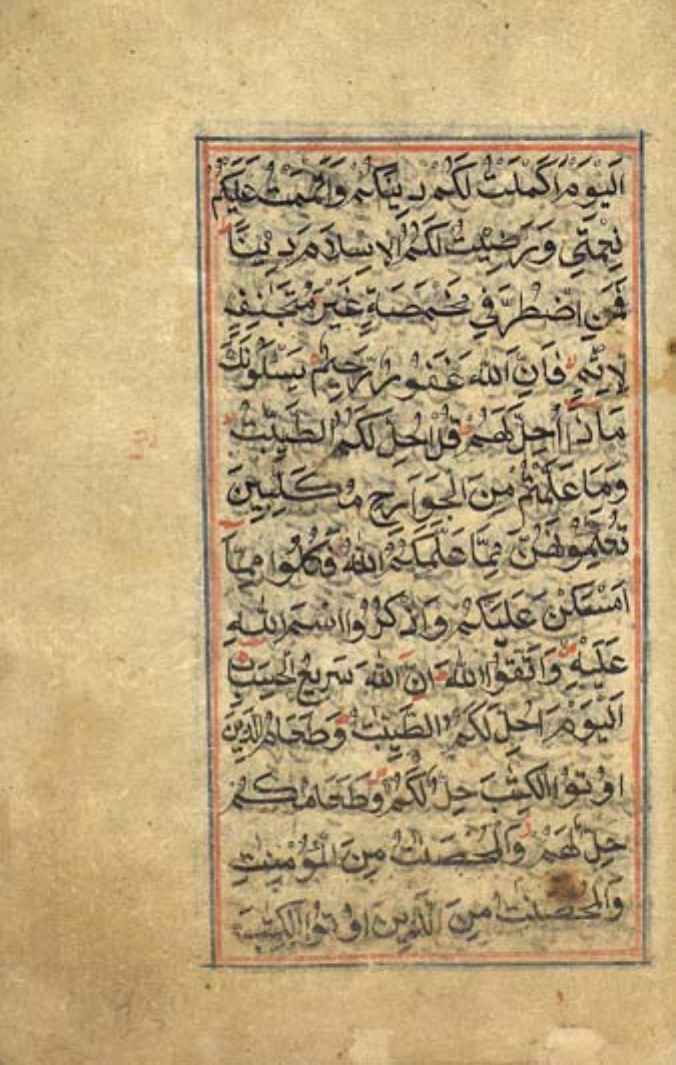 اَلْيَوْمَ اَكْمَلْتُ لَكُمْ دِينَكُمْ وَاَتْمَمْتُ عَلَيْكُمْ
نِعْمَتِي وَرَضِيتُ لَكُمُ الْاِسْلَامَ دِينًا
فَمَنِ اضْطُرَّ فِي مَخْمَصَةٍ غَيْرَ مُتَجَانِفٍ
لِاِثْمٍ فَاِنَّ اللهَ غَفُورٌ رَّحِيمٌ يَسْئَلُونَكَ
مَاذَا اُحِلَّ لَهُمْ قُلْ اُحِلَّ لَكُمُ الطَّيِّبٰتُ
وَمَا عَلَّمْتُمْ مِنَ الْجَوَارِحِ مُكَلِّبِينَ
تُعَلِّمُونَهُنَّ مِمَّا عَلَّمَكُمُ اللهُ فَكُلُوا مِمَّا
اَمْسَكْنَ عَلَيْكُمْ وَاذْكُرُوا اسْمَ اللهِ
عَلَيْهِ وَاتَّقُوا اللهَ اِنَّ اللهَ سَرِيعُ الْحِسَابِ
اَلْيَوْمَ اُحِلَّ لَكُمُ الطَّيِّبٰتُ وَطَعَامُ الَّذِينَ
اُوتُوا الْكِتٰبَ حِلٌّ لَكُمْ وَطَعَامُكُمْ
حِلٌّ لَهُمْ وَالْمُحْصَنٰتُ مِنَ الْمُؤْمِنٰتِ
وَالْمُحْصَنٰتُ مِنَ الَّذِينَ اُوتُوا الْكِتٰبَ